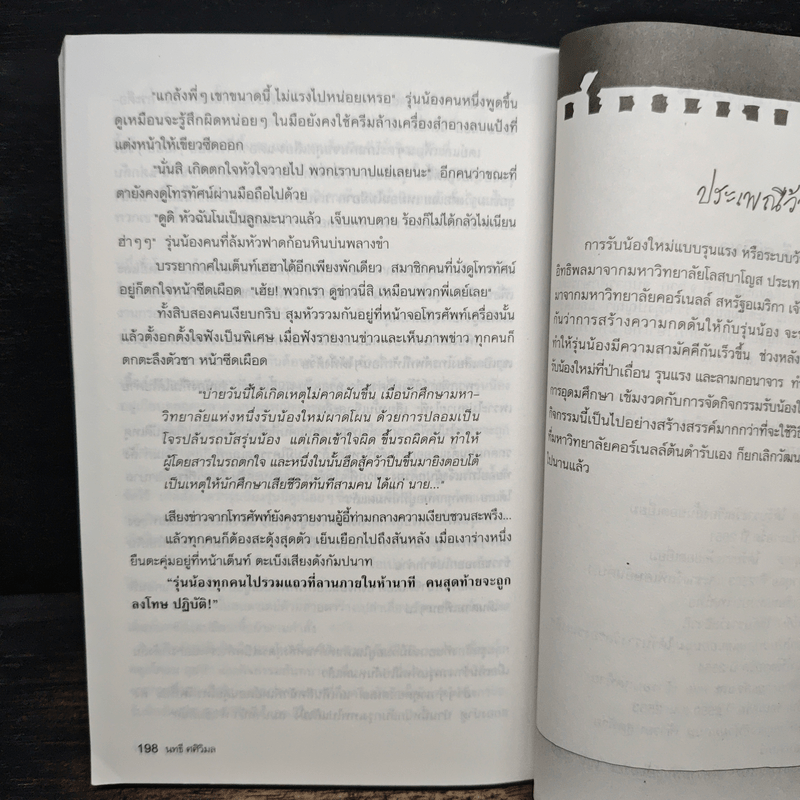 "แกล้งพี่ๆ เขาขนาดนี้ ไม่แรงไปหน่อยเหรอ" รุ่นน้องคนหนึ่งพูดขึ้น
ดูเหมือนจะรู้สึกผิดหน่อยๆ ในมือยังคงใช้ครีมล้างเครื่องสำอางลบแป้งที่
แต่งหน้าให้เขียวซีดออก
"นั่นสิ เกิดตกใจหัวใจวายไป พวกเราบาปแย่เลยนะ" อีกคนว่าขณะที่
ตายังคงดูโทรทัศน์ผ่านมือถือไปด้วย
"ดูดิ หัวฉันโนเป็นลูกมะนาวแล้ว เจ็บแทบตาย ร้องก็ไม่ได้กลัวไม่เนียน
ฮ่าๆๆ" รุ่นน้องคนที่ล้มหัวฟาดก้อนหินบ่นพลางขำ
บรรยากาศในเต็นท์เฮฮาได้อีกเพียงพักเดียว สมาชิกคนที่นั่งดูโทรทัศน์
อยู่ก็ตกใจหน้าซีดเผือด "เฮ้ย! พวกเรา ดูข่าวนี่สิ เหมือนพวกพี่เดย์เลย"
ทั้งสิบสองคนเงียบกริบ สุมหัวรวมกันอยู่ที่หน้าจอโทรศัพท์เครื่องนั้น
แล้วตั้งอกตั้งใจฟังเป็นพิเศษ เมื่อฟังรายงานข่าวและเห็นภาพข่าว ทุกคนก็
ตกตะลึงตัวชา หน้าซีดเผือด
"บ่ายวันนี้ได้เกิดเหตุไม่คาดฝันขึ้น เมื่อนักศึกษามหา-
วิทยาลัยแห่งหนึ่งรับน้องใหม่ผาดโผน ด้วยการปลอมเป็น
โจรปล้นรถบัสรุ่นน้อง แต่เกิดเข้าใจผิด ขึ้นรถผิดคัน ทำให้
ผู้โดยสารในรถตกใจ และหนึ่งในนั้นฮึดสู้คว้าปืนขึ้นมายิงตอบโต้
เป็นเหตุให้นักศึกษาเสียชีวิตทันทีสามคน ได้แก่ นาย..."
เสียงข่าวจากโทรศัพท์ยังคงรายงานอู้อี้ท่ามกลางความเงียบชวนสะพรึง...
แล้วทุกคนก็ต้องสะดุ้งสุดตัว เย็นเยือกไปถึงสันหลัง เมื่อเงาร่างหนึ่ง
ยืนตะคุ่มอยู่ที่หน้าเต็นท์ ตะเบ็งเสียงดังกัมปนาท
"รุ่นน้องทุกคนไปรวมแถวที่ลานภายในห้านาที คนสุดท้ายจะถูก
ลงโทษ ปฏิบัติ!"
198 นทธี ศศิวิมล
ประเพณีว้า
การรับน้องใหม่แบบรุนแรง หรือระบบว้
อิทธิพลมาจากมหาวิทยาลัยโลสบาโญส ประเท
มาจากมหาวิทยาลัยคอร์เนลล์ สหรัฐอเมริกา เจ้
กันว่าการสร้างความกดดันให้กับรุ่นน้อง จะท
ทำให้รุ่นน้องมีความสามัคคีกันเร็วขึ้น ช่วงหลัง
รับน้องใหม่ที่ป่าเถื่อน รุนแรง และลามกอนาจาร ทำ
การอุดมศึกษา เข้มงวดกับการจัดกิจกรรมรับน้องให
กิจกรรมนี้เป็นไปอย่างสร้างสรรค์มากกว่าที่จะใช้วิธี
ที่มหาวิทยาลัยคอร์เนลล์ต้นตำรับเอง ก็ยกเลิกวัฒน
ไปนานแล้ว